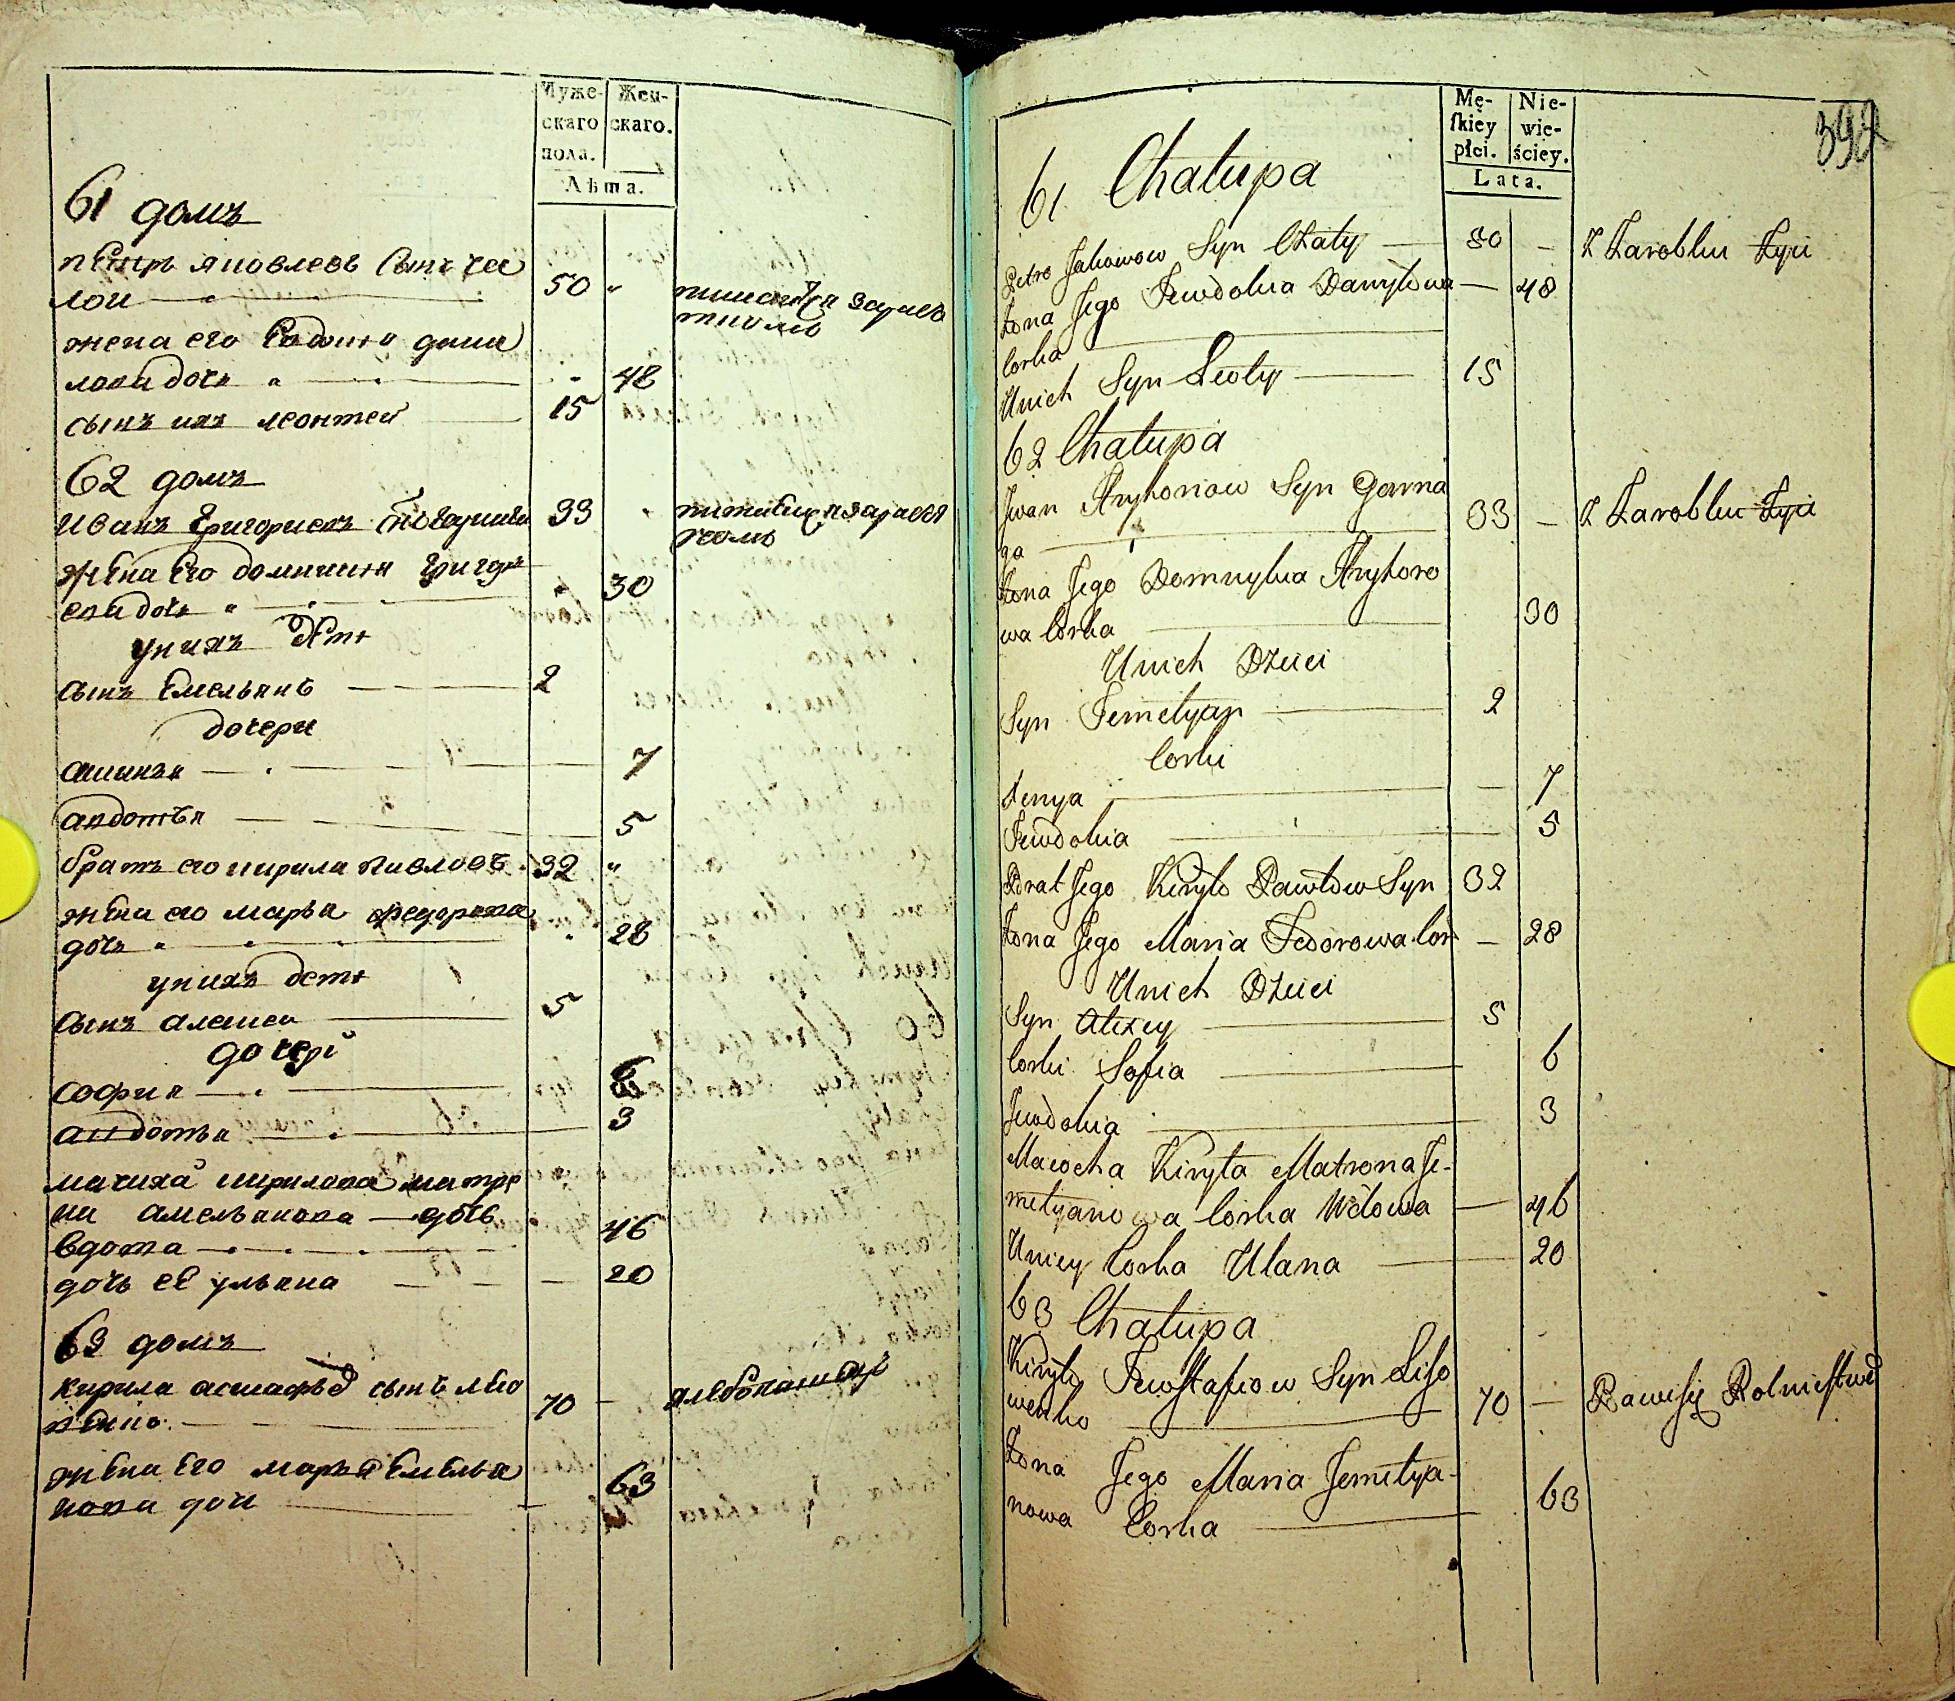 Муже-
скаго
пола.
Жен-
скаго.
Лѣта.
61 домъ
петръ яковлевъ сынъ чея
лои 50 "
питаитца зарабо
тком
жена его Евдокия дани
лова дочь " 48
сынъ ихъ леонтеи 15
62 домъ
иванъ григориевъ 33 "
жена его домникия григор
ева дочь " 30
у нихъ дети
сынъ Емельянъ 2
дочери
аксинья 7
авдотья 5
братъ его кирила павловъ 32 "
жена его марья федорова
дочь " 28
у нихъ дети
сынъ алексеи 5
дочери
софия 6
авдотья 3
мачиха кирилова матре
на амельянова дочь
вдова 46
дочь её ульяна 20
63 домъ
кирила астафьев сынъ лисо
венко 70
хлебопашец
жена его марья Емелья
нова дочь 63
Mę-
ſkiey
płci.
Nie-
wie-
ściey.
Lata.
392
61 Chałupa
Petro Jakowow Syn Chały 50 — Z Zarobku Żyi
Żona Jego Jewdokia Daniłowa — 48
Corka
Unich Syn Leoty 15
62 Chałupa
Iwan Hryhoriow Syn Gawna
ga 33 — Z Zarobku Żyi
Żona Jego Domnykia Hryhoro
wa Corka 30
Unich Dzieci
Syn Jemelyan 2
Corki
Xenya — 7
Jewdokia 5
Brat Jego Kiryło Pawłow Syn 32
Żona Jego Maria Fedorowa Cor — 28
Unich Dzieci
Syn Alexey 5
Corki Sofia 6
Jewdokia 3
Macocha Kiryła Matrona Je-
melyanowa Corka Wdowa — 46
Uniey Corka Ulana 20
63 Chałupa
Kiryło Jewstafiow Syn Liso
wenko 70 — Bawi się Rolnictwe
Żona Jego Maria Jemelya-
nowa Corka 63